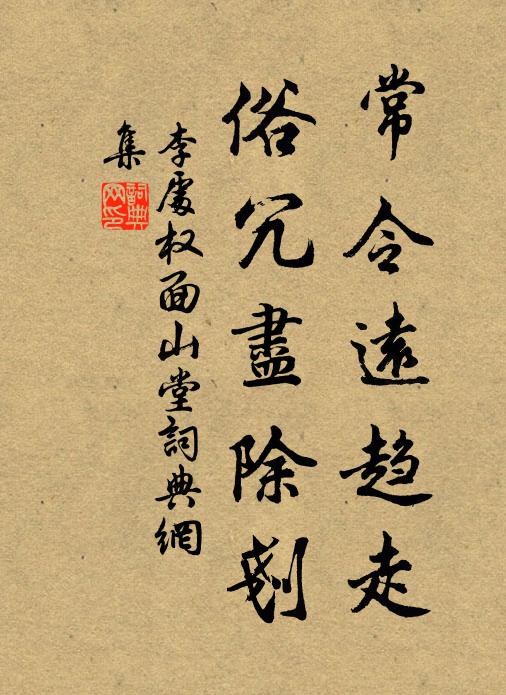 常令遠趋走
俗冗盡除剗
李處权面山堂詞典網
集
詞典网印